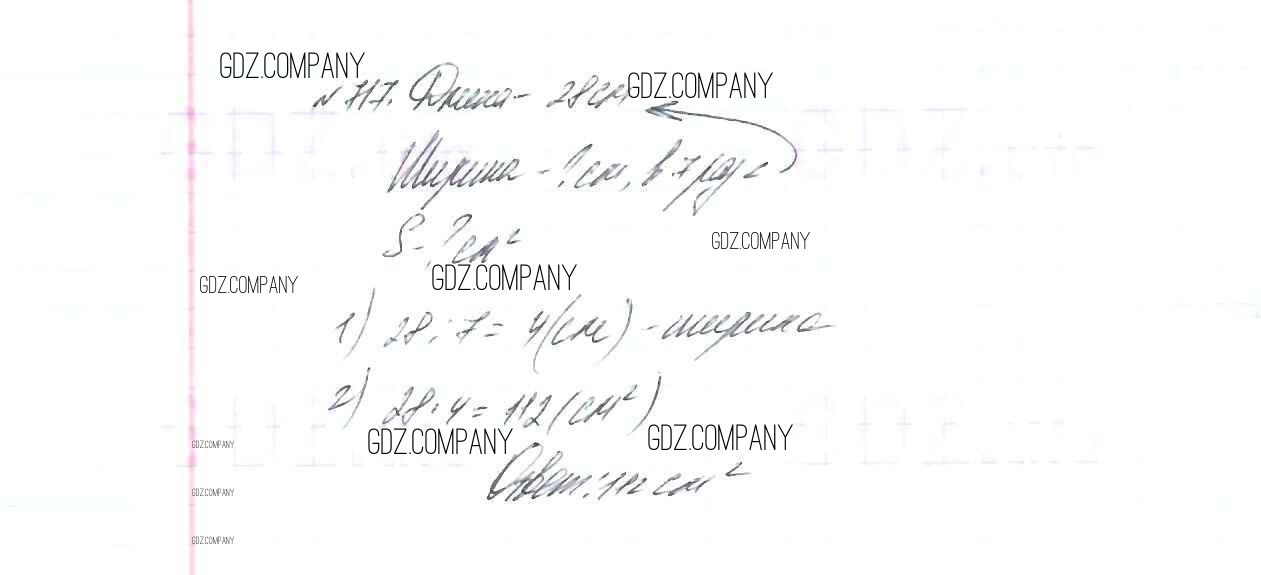 GDZ.COMPANY
№ 717. Длина - 28 см GDZ.COMPANY
Ширина - ? см, в 7 р
S - ? см²
GDZ.COMPANY
GDZ.COMPANY
GDZ.COMPANY
1) 28 : 7 = 4 (см) - ширина
2) 28 · 4 = 112 (см²)
GDZ.COMPANY
GDZ.COMPANY
GDZ.COMPANY
Ответ: 112 см²
GDZ.COMPANY
GDZ.COMPANY